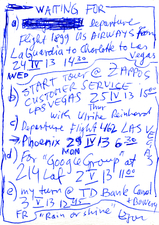 WAITING FOR
a) Departure
Flight 1899 US AIRWAYS from
LaGuardia to Charlotte to Las Vegas
24 IV 13 14:30
WED
b) START Tour @ ZAPPOS
CUSTOMER SERVICE
LAS VEGAS 25 IV 13
Thur
with Ulrike Reinhard
c) Departure Flight 462 LAS
→ Phoenix 29 IV 13 6:30
MON
d) For "Google Group" at
2 V 13 11:00
e) my turn @ TD Bank Canal
3 V 13
+ Bowery
FR "Rain or shine"